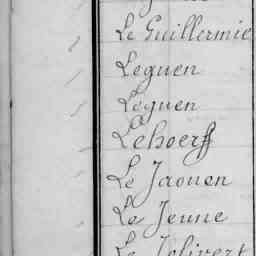 Le Guillermic
Leguen
Leguen
Lehoerff
Le Jaouen
Le Jeune
Le Jolivert